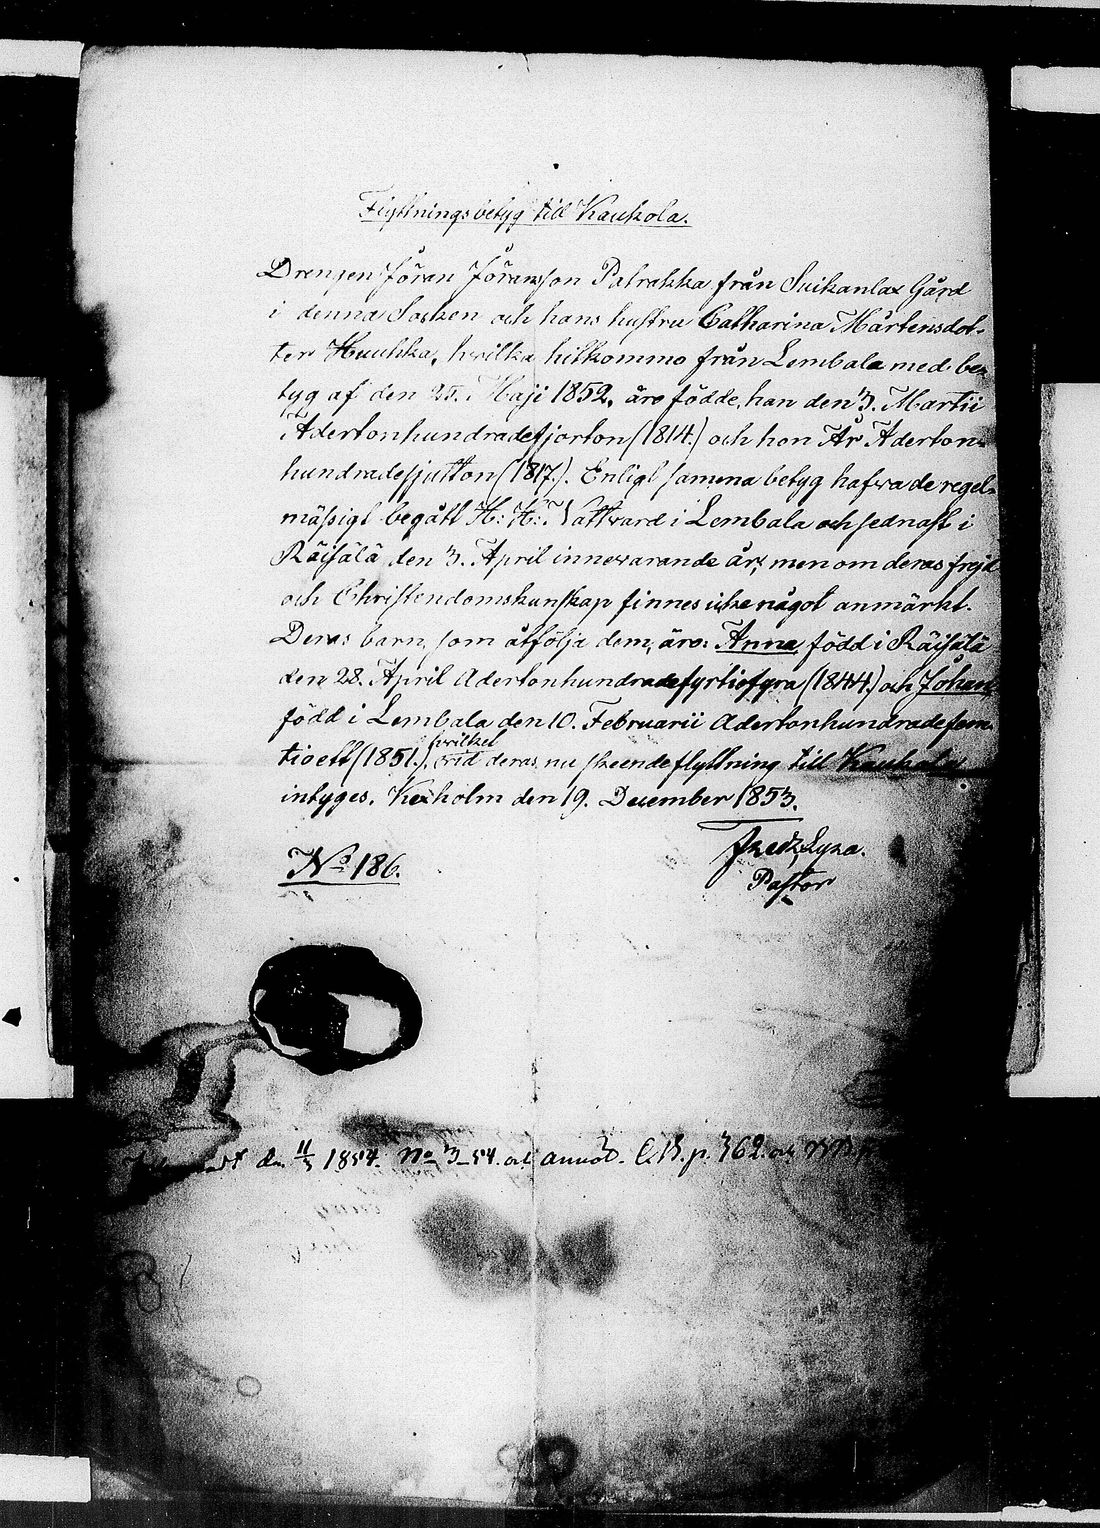 Flyttningsbetyg till Kaukola.
Drengen Jöran Jöransson Patrakka från Suikanlax Gård
i denna Socken och hans hustru Catharina Mårtensdot-
ter Huuhka, hvilka hitkommo från Lembala med be-
tyg af den 25. Maji 1852, äro födde, han den 3. Martii
Adertonhundradefjorton (1814.) och hon År Aderton-
hundradesjutton (1817.). Enligt samma betyg hafva de regel-
mässigt begått H: H: Nattvard i Lembala och sednast i
Räisälä den 3. April innevarande år, men om deras frejd
och Christendomskunskap finnes icke något anmärkt.
Deras barn, som åtfölja dem, äro: Anna född i Räisälä
den 28. April Adertonhundradefyrtiofyra (1844.) och Johan
född i Lembala den 10. Februarii Adertonhundradefem-
tioett (1851.), hvilket vid deras nu skeende flyttning till Kaukola
intyges. Kexholm den 19. December 1853.
Fredr. Lyra.
Pastor
No 186.
den 11/3 1854. No 3_54. och annot. C.B. p. 362. och